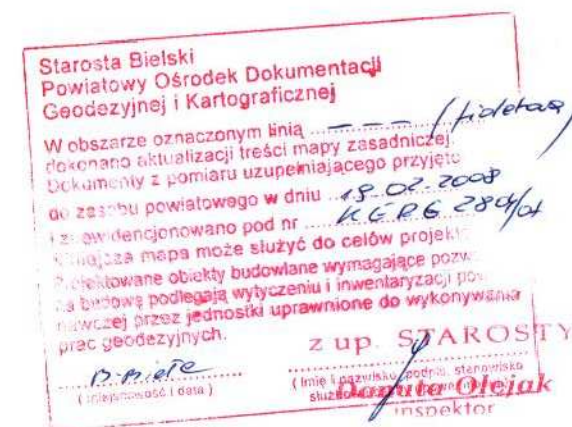 Starosta Bielski
Powiatowy Ośrodek Dokumentacji
Geodezyjnej i Kartograficznej
W obszarze oznaczonym linią --- /fioletową
dokonano aktualizacji treści mapy zasadniczej.
Dokumenty z pomiaru uzupełniającego przyjęto
do zasobu powiatowego w dniu 19.02-2008
i zaewidencjonowano pod nr KERG
mapa może służyć do celów
Projektowane obiekty budowlane wymagające
na budowę podlegają wytyczeniu i inwentaryzacji
przez jednostki uprawnione do wykonywania
prac geodezyjnych.
z up. STAROSTY
B-Biała
( miejscowość i data )
( imię i nazwisko, podpis, stanowisko
Danuta Olejak
inspektor